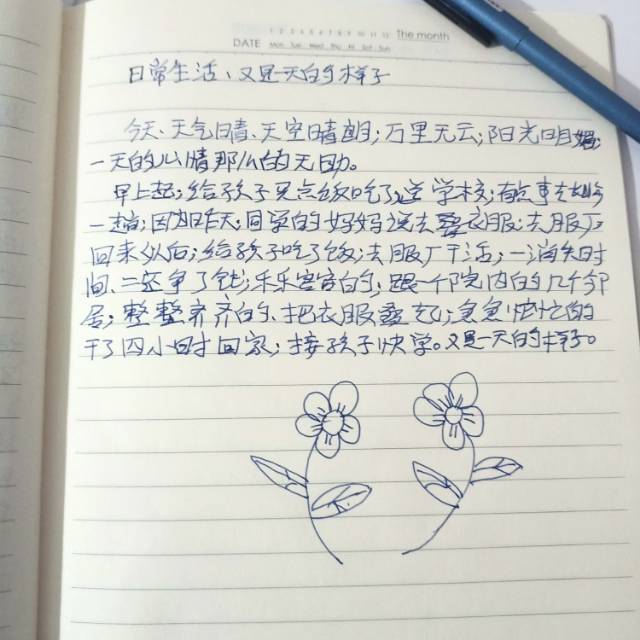 1 2 3 4 5 6 7 8 9 10 11 12 The month
DATE Mon Tue Wed Thu Fri Sat Sun
日常生活、又是一天的样子
今天、天气晴、天空晴朗;万里无云;阳光明媚;
一天的心情那么的无助。
早上起;给孩子买点饭吃了送学校;有点事去
一趟;因为昨天同学的妈妈说去叠衣服;去服厂
回来以后;给孩子吃了饭;去服厂干活;一消失时
间、二还争了钱;乐乐害害的;跟一个院内的几个邻
居;整整齐齐的、把衣服叠
;急急忙忙的
干了四小时回家;接孩子快学。又是一天的样子。